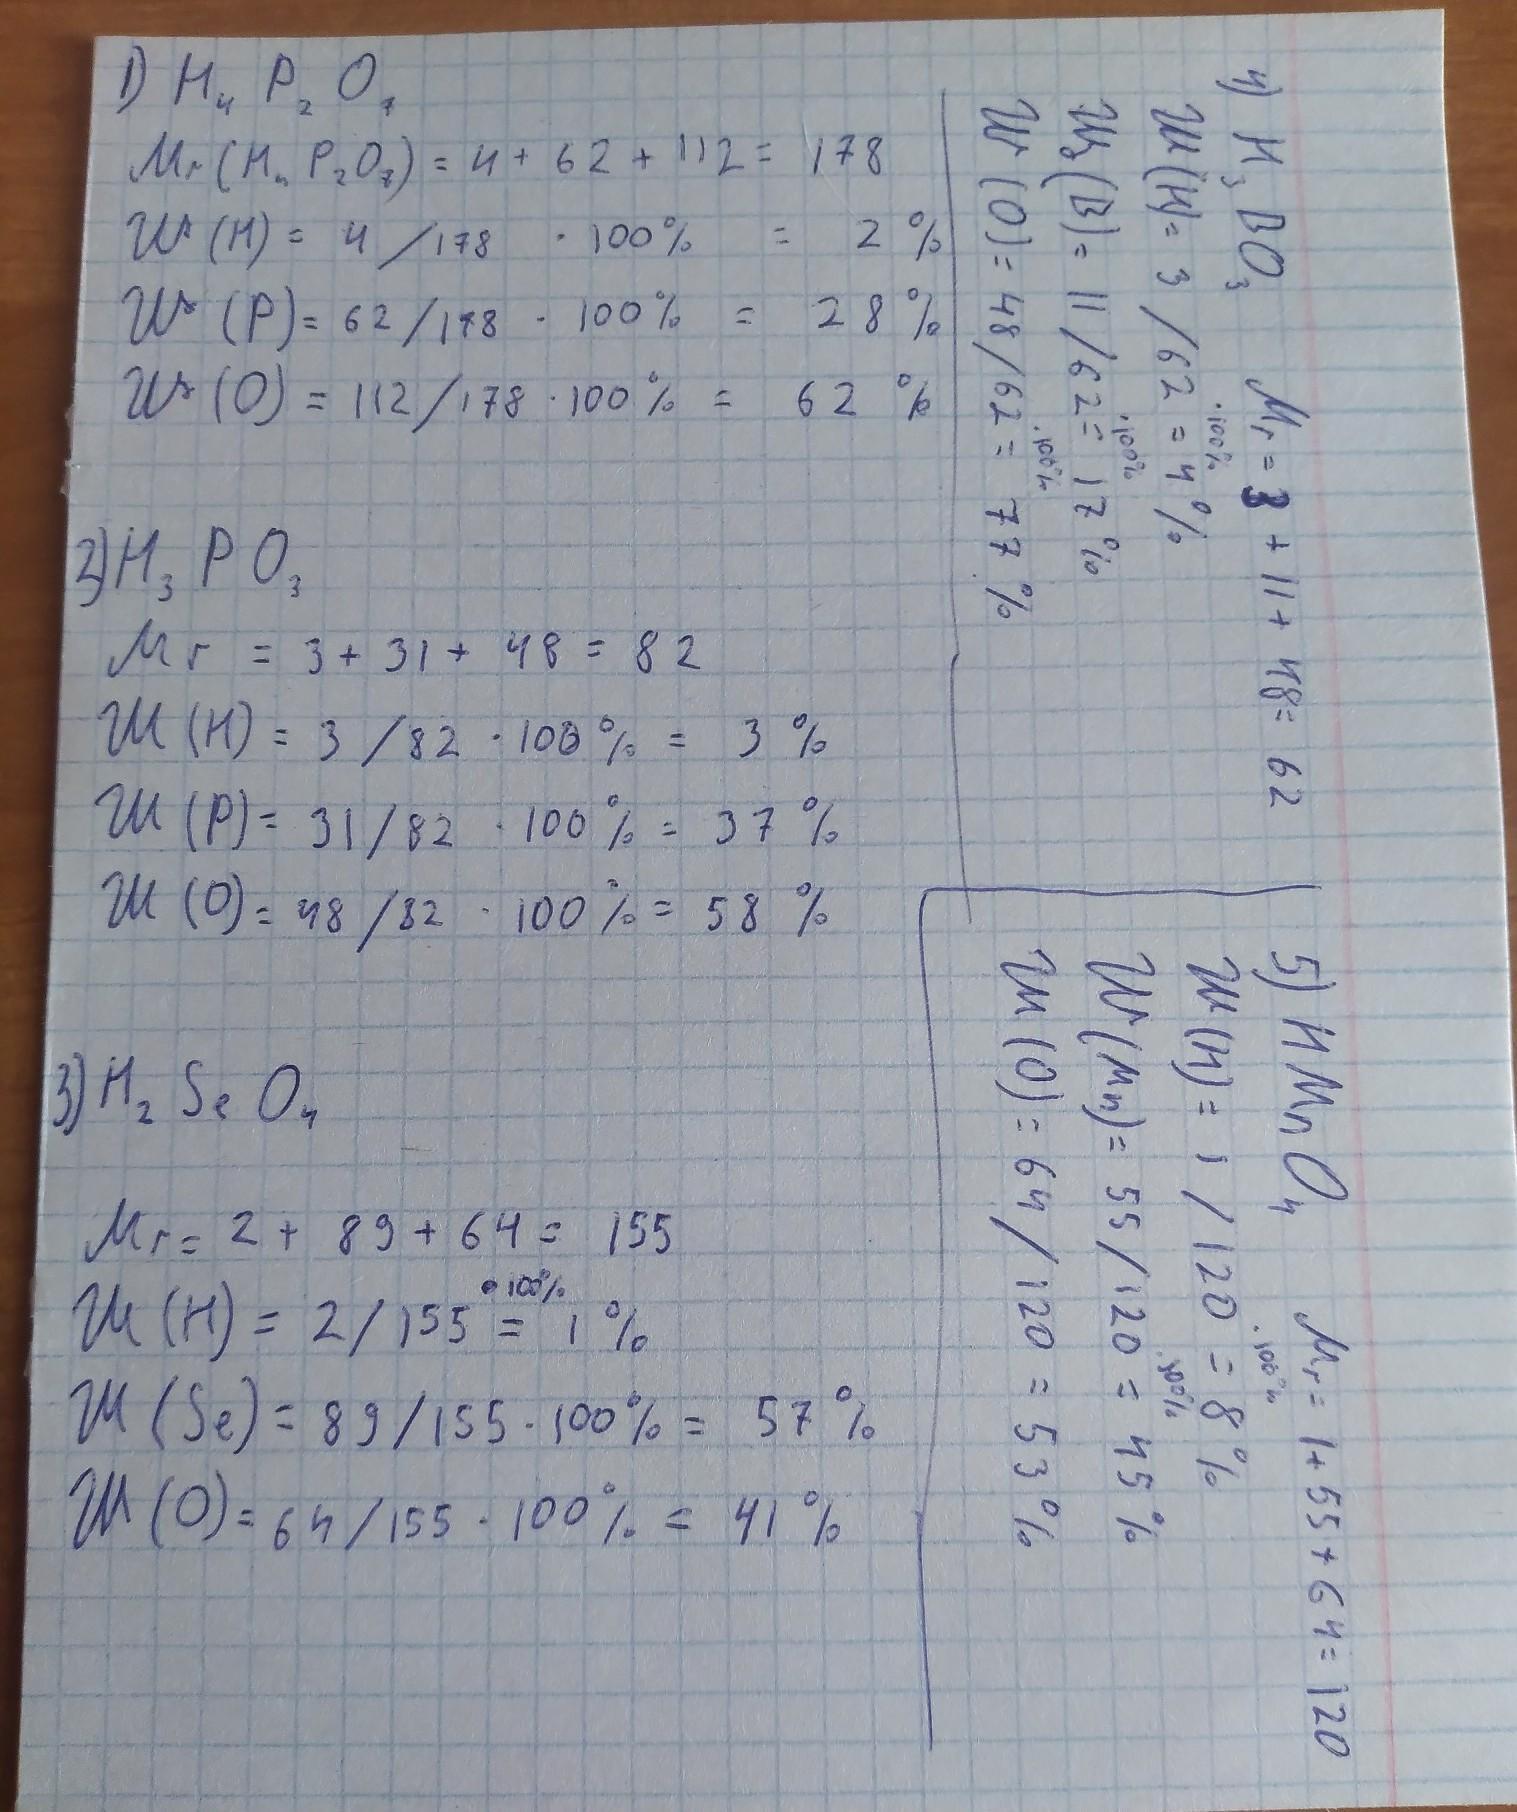 1) H₄ P₂ O₇
Mr (H₄ P₂O₇) = 4 + 62 + 112 = 178
W (H) = 4 / 178 · 100% = 2 %
W (P) = 62 / 178 · 100% = 28 %
W (O) = 112 / 178 · 100% = 62 %
2) H₃ P O₃
Mr = 3 + 31 + 48 = 82
W (H) = 3 / 82 · 100% = 3 %
W (P) = 31 / 82 · 100% = 37 %
W (O) = 48 / 82 · 100% = 58 %
3) H₂ Se O₄
Mr = 2 + 89 + 64 = 155
W (H) = 2 / 155 · 100% = 1 %
W (Se) = 89 / 155 · 100% = 57 %
W (O) = 64 / 155 · 100% = 41 %
4) H₃ BO₃ Mr = 3 + 11 + 48 = 62
W (H) = 3 / 62 · 100% = 4 %
W (B) = 11 / 62 · 100% = 17 %
W (O) = 48 / 62 · 100% = 77 %
5) H Mn O₄ Mr = 1 + 55 + 64 = 120
W (H) = 1 / 120 · 100% = 8 %
W (Mn) = 55 / 120 · 100% = 45 %
W (O) = 64 / 120 = 53 %